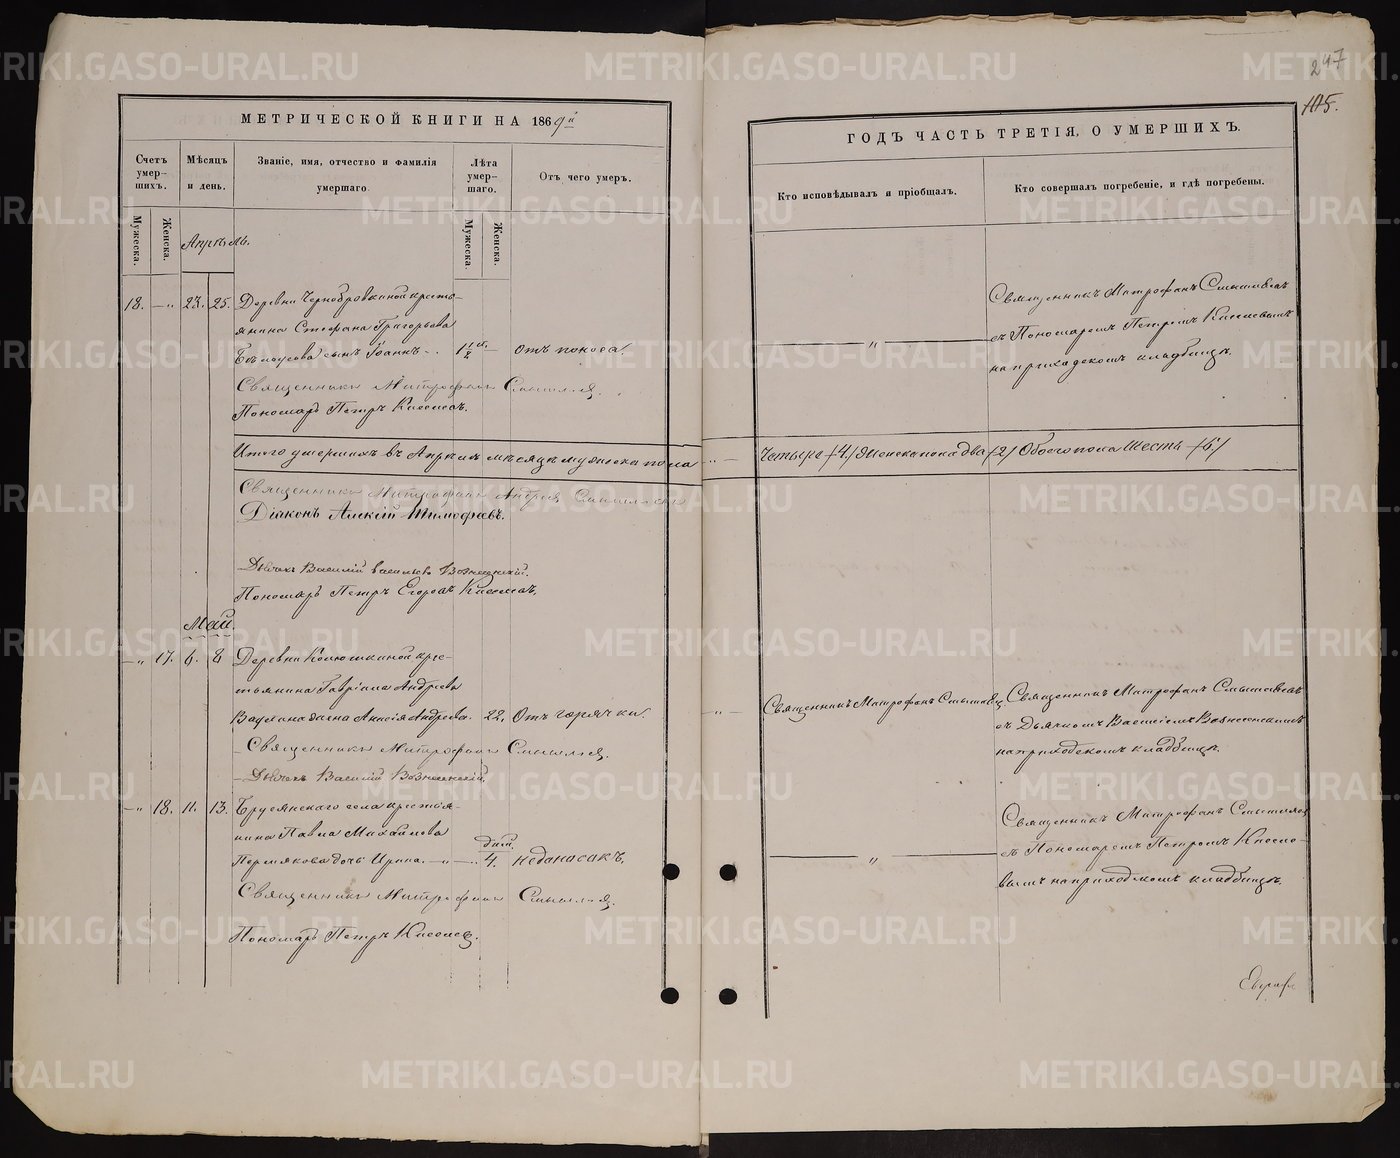 247
105.
МЕТРИЧЕСКОЙ КНИГИ НА 1869й
ГОДЪ ЧАСТЬ ТРЕТІЯ, О УМЕРШИХЪ.
Счетъ умершихъ.
Мѣсяцъ и день.
Званіе, имя, отчество и фамилія умершаго.
Лѣта умершаго.
Отъ чего умеръ.
Кто исповѣдывалъ и пріобщалъ.
Кто совершалъ погребеніе, и гдѣ погребены.
Мужеска.
Женска.
Мужеска.
Женска.
Апрѣль.
18. — „ 23. 25. Деревни Чернобровкиной кресть-
янина Стефана Григорьева
сынъ Іоаннъ 1 1/2 Отъ поноса.
Священникъ Митрофанъ
Пономарь Петръ Киселевъ.
Священникъ Митрофанъ
съ Пономаремъ Петромъ Киселевымъ
на приходскомъ кладбищѣ.
Итого умершихъ въ Апрѣлѣ мѣсяцѣ мужеска пола — четыре /4/ Женска пола два /2/ Обоего пола шесть /6/
Священникъ Митрофанъ Андреевъ
Діаконъ Алексій Тимофеевъ.
Дьячекъ Василій Васильевъ Вознесенскій.
Пономарь Петръ Егоровъ Киселевъ.
Май.
— „ 17. 6. 8 Деревни Колюткиной кре-
стьянина Гавріила Андреева
жена Анисія Андреева. 22. Отъ горячки.
Священникъ Митрофанъ
Дьячекъ Василій Вознесенскій.
Священникъ Митрофанъ
Священникъ Митрофанъ
съ Дьячкомъ Василіемъ Вознесенскимъ
на приходскомъ кладбищѣ.
— „ 18. 11. 13. Брусянскаго села крестья-
нина Павла Михайлова
Пермякова дочь Ирина. — „ — дней 4. недоносокъ.
Священникъ Митрофанъ
Пономарь Петръ Киселевъ.
Священникъ Митрофанъ
съ Пономаремъ Петромъ Киселе-
вымъ на приходскомъ кладбищѣ.
METRIKI.GASO-URAL.RU